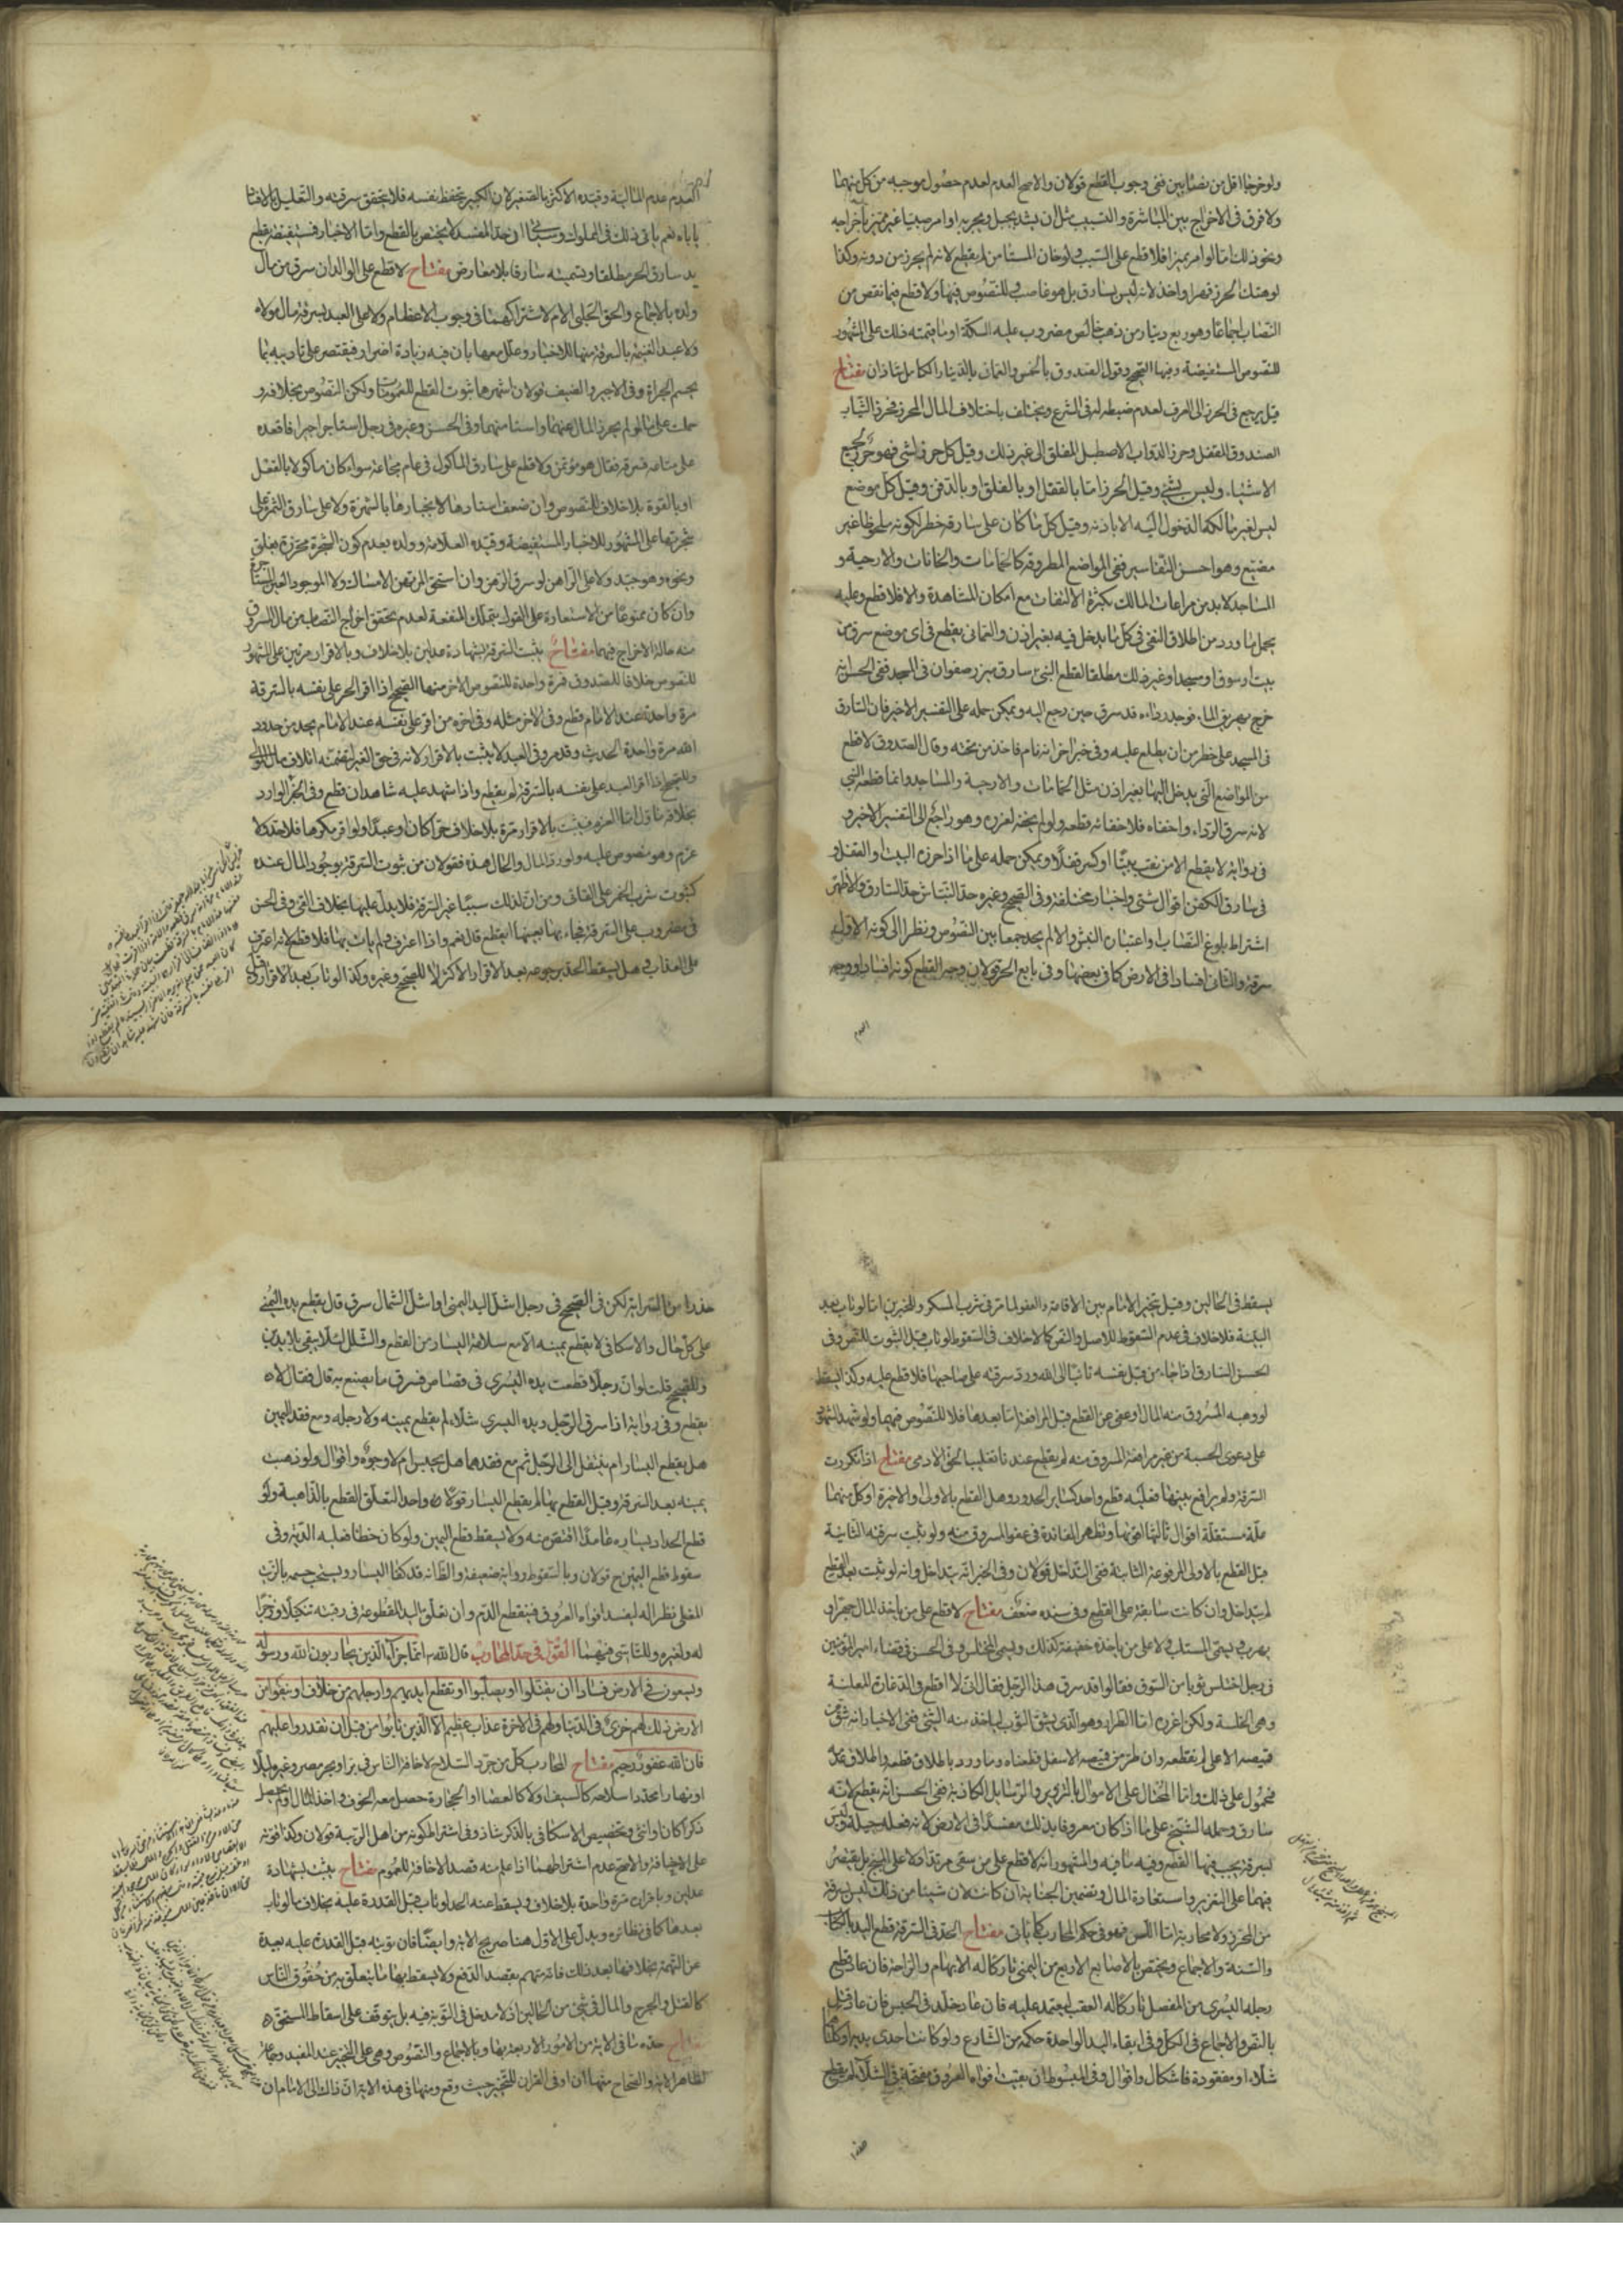 ولو خرجا اقل من نصابين ففي وجوب القطع قولان والاصح العدم لعدم حصول موجبه من كل منهما
ولا فرق في الاخراج بين المباشرة والتسبيب مثل ان يشد بحبل ويجر به او امر صبيا غير مميز باخراجه
ونحو ذلك اما لو امر مميزا فلا قطع على السبب ولو خان المستامن لم يقطع لانه لم يحرز من دونه وكذا
لو هتك الحرز قهرا واخذ لانه ليس بسارق بل هو غاصب للنصوص فيها ولا قطع فيما نقص من
النصاب اجماعا وهو ربع دينار من ذهب خالص مضروب عليه السكة او ما قيمته ذلك على المشهور
للنصوص المستفيضة وفيها الصحيح وقول الصدوق بالخمس والعماني بالدينار الكامل شاذان مفتاح
قيل يرجع في الحرز الى العرف لعدم ضبطه في الشرع ويختلف باختلاف المال المحرز فحرز الثياب
الصندوق المقفل وحرز الدواب الاصطبل المغلق الى غير ذلك وقيل كل حرز لشي فهو حرز لجميع
الاشياء وليس بشي وقيل الحرز اما بالقفل او بالغلق او بالدفن وقيل كل موضع
ليس لغير مالكه الدخول اليه الا باذنه وقيل كل ما كان على سارقه خطر لكونه ملحوظا غير
مضيع وهو احسن التفاسير ففي المواضع المطروقة كالحمامات والخانات والارحية و
المساجد لا بد من مراعات المالك بكثرة الالتفات مع امكان المشاهدة والا فلا قطع وعليه
يحمل ما ورد من اطلاق النفي في كل ما يدخل فيه بغير اذن والعماني يقطع في اى موضع سرق من
بيت او سوق او مسجد او غير ذلك مطلقا لقطع النبي سارق مئزر صفوان في المسجد ففي الحسن انه
خرج يهريق الماء فوجد رداءه قد سرق حين رجع اليه ويمكن حمله على التفسير الاخير فان السارق
في المسجد على خطر من ان يطلع عليه وفي خبر اخر انه نام فاخذ من تحته وقال الصدوق لا قطع
من المواضع التي يدخل اليها بغير اذن مثل الحمامات والارحية والمساجد وانما قطعه النبي
لانه سرق الرداء واخفاه فلاخفائه قطعه ولو لم يخفه لعزره وهو راجع الى التفسير الاخير و
في رواية لا يقطع الا من نقب بيتا او كسر قفلا ويمكن حمله على ما اذا حرزه البيت او القفل و
في سارق الكفن اقوال شتى واخبار مختلفة وفي الصحيح وغيره حد النباش حد السارق والاظهر
اشتراط بلوغ النصاب او اعتياده النبش والا لم يحد جمعا بين النصوص ونظرا الى كونه الاول
سرقة والثاني افسادا في الارض كما في بعضها وفي بايع الحر قولان وجه القطع كونه افسادا ووجه
العدم
العدم عدم المالية وقيده الاكثر بالصغير لان الكبير يتحفظ نفسه فلا يتحقق سرقته والتعليل بالافساد
ياباه نعم ياتي ذلك في المملوك وسياتي ان حد المفسد لا يختص بالقطع واما الاخبار فمستفيضة بقطع
يد سارق الحر مطلقا وبتسميته سارقا بلا معارض مفتاح لا قطع على الوالد ان سرق من مال
ولده بالاجماع والحق الحلبي الام لاشتراكهما في وجوب الاعظام ولا على العبد بسرقة مال مولاه
ولا عبد الغنيمة بالسرقة منها للاخبار وعلل معها بان فيه زيادة اضرار فيقتصر على تاديبه بما
يحسم الجراة وفي الاجير والضيف قولان اشهرهما ثبوت القطع للعمومات ولكن النصوص بخلافه و
حملت على ما لو لم يحرز المال عنهما واستامنهما وفي الحسن وغيره في رجل استاجر اجيرا فاقعده
على متاعه فسرقه فقال هو مؤتمن ولا قطع على سارق الماكول في عام مجاعة سواء كان ماكولا بالفعل
او بالقوة بلا خلاف للنصوص وان ضعف اسنادها لانجبارها بالشهرة ولا على سارق الثمرة على
شجرتها على المشهور للاخبار المستفيضة وقيده العلامة وولده بعدم كون الشجرة محرزة بغلق
ونحوه وهو جيد ولا على الراهن لو سرق الرهن وان استحق المرتهن الامساك ولا الموجر العين المستاجرة
وان كان ممنوعا من الاستعادة على القول بتملك المنفعة لعدم تحقق اخراج النصاب من مال المسروق
منه حالة الاخراج فيهما مفتاح يثبت السرقة بشهادة عدلين بلا خلاف وبالاقرار مرتين على المشهور
للنصوص خلافا للصدوق فمرة واحدة للنصوص الاخر منها الصحيح اذا اقر الحر على نفسه بالسرقة
مرة واحدة عند الامام قطع وفي الاخر مثله وفي اخره من اقر على نفسه عند الامام بحد من حدود
الله مرة واحدة الحديث وقد مر وفي العبد لا يثبت بالاقرار لانه في حق الغير لتضمنه اتلاف مال المولى
وللصحيح اذا اقر العبد على نفسه بالسرقة لم يقطع واذا شهد عليه شاهدان قطع وفي الخبر الوارد
بخلافه تاول اما الغرم فيثبت بالاقرار مرة بلا خلاف حرا كان او عبدا ولو اقر مكرها فلا حد ولا
غرم وهو منصوص عليه ولو رد المال والحال هذه فقولان من ثبوت السرقة بوجود المال عنده
كثبوت شرب الخمر على القائى ومن ان لذلك سببا غير السرقة فلا يدل عليها بخلاف القي وفي الحسن
في مضروب على السرقة فجاء بها بعينها ايقطع قال نعم واذا اعترف ولم يات بها فلا قطع لانه اعترف
على العذاب وهل يسقط الحد برجوعه بعد الاقرار الاكثر لا للصحيح وغيره وكذا لو تاب بعد الاقرار وقيل
يسقط في الحالين وقيل يتخير الامام بين الاقامة والعفو لما مر في شرب المسكر وللخبرين اما لو تاب بعد
البينة فلا خلاف في عدم السقوط للاصل والنص كما لا خلاف في السقوط لو تاب قبل الثبوت للنص وفي
الحسن السارق اذا جاء من قبل نفسه تائبا الى الله ورد سرقته على صاحبها فلا قطع عليه وكذا يسقط
لو وهبه المسروق منه المال او عفى عن القطع قبل المرافعة اما بعدها فلا للنصوص فيهما ولو شهد الشهود
على دعوى الحسبة من غير مرافعة المسروق منه لم يقطع عندنا تغليبا لحق الادمي مفتاح اذا تكررت
السرقة ولم يرافع بينهما فعليه قطع واحد كساير الحدود وهل القطع بالاولى او الاخيرة او كل منهما
علة مستقلة اقوال ثالثها اقويها وتظهر الفائدة في عفو المسروق منه ولو ثبت سرقته الثانية
قبل القطع بالاولى المرفوعة الثابتة ففي التداخل قولان وفي الخبر انه يتداخل وانه لو ثبت بعد القطع
لم يتداخل وان كانت سابقة على القطع وفي سنده ضعف مفتاح لا قطع على من ياخذ المال جهرا و
يهرب ويسمى المستلب ولا على من ياخذه خفية كذلك ويسمى المختلس وفي الحسن في قضاء امير المؤمنين
في رجل اختلس ثوبا من السوق فقالوا قد سرق هذا الرجل فقال اني لا اقطع في الدغارة المعلنة
وهي الخلسة ولكن اعزره اما الطرار وهو الذي يشق الثوب لياخذ منه الشئ ففي الاخبار انه ان شق من
قميصه الاعلى لم يقطعه وان طر من قميصه الاسفل قطعناه وما ورد باطلاق قطعه واطلاق عدمه
فمحمول على ذلك واما المحتال على الاموال بالتزوير والرسايل الكاذبة ففي الحسن انه يقطع لانه
سارق وحمله الشيخ على ما اذا كان معروفا بذلك مفسدا في الارض لانه فعله حيلة وليس
بسرقة يجب فيها القطع وفيه ما فيه والمشهور انه لا قطع على من سقى مرقدا ولا على المبنج بل يقتصر
فيهما على التعزير واستعادة المال وتضمين الجناية ان كانت لان شيئا من ذلك ليس بسرقة
من المحرز ولا محاربة اما اللص فهو في حكم المحارب كما ياتى مفتاح الحد في السرقة قطع اليد بالكتاب
والسنة والاجماع ويختص بالاصابع الاربع من اليمنى تاركا له الابهام والراحة فان عاد قطع
رجله اليسرى من المفصل تاركا له العقب ليعتمد عليه فان عاد خلد في الحبس فان عاد قتل
بالنص والاجماع في الكل وفي ابقاء اليد الواحدة حكمة من الشارع ولو كانت احدى يديه او كلتاهما
شلاء او مفقودة فاشكال واقوال وفي المبسوط ان بقيت افواه العروق مفتحة في الشلاء لم يقطع
حذرا
حذرا من السراية لكن في الصحيح في رجل اشل اليد اليمنى او اشل الشمال سرق قال يقطع يده اليمنى
على كل حال والاسكافى لا يقطع يمينه الا مع سلامة اليسار من القطع والشلل لئلا يبقى بلا يدين
وللصحيح قلت لو ان رجلا قطعت يده اليسرى في قصاص فسرق ما يصنع به قال فقال لا
يقطع وفي رواية اذا سرق الرجل ويده اليسرى شلاء لم يقطع يمينه ولا رجله ومع فقد اليمين
هل يقطع اليسار ام ينتقل الى الرجل ثم مع فقدهما هل يحبس ام لا وجوه واقوال ولو ذهبت
يمينه بعد السرقة وقبل القطع بها لم يقطع اليسار قولا واحدا لتعلق القطع بالذاهبة ولو
قطع الحداد يساره عامدا اقتص منه ولا يسقط قطع اليمين ولو كان خطأ فعليه الدية وفي
سقوط قطع اليمين ح قولان وبالسقوط رواية ضعيفة والظانه قد كفا اليسار ويستحب حسمه بالزيت
المغلى نظرا له ليفسد افواه العروق فينقطع الدم وان تعلق اليد المقطوعة في رقبته تنكيلا وزجرا
له ولغيره وللتاسي فيهما القول في حد المحارب قال الله انما جزاء الذين يحاربون الله ورسوله
ويسعون في الارض فسادا ان يقتلوا او يصلبوا او تقطع ايديهم وارجلهم من خلاف او ينفوا من
الارض ذلك لهم خزى في الدنيا ولهم في الاخرة عذاب عظيم الا الذين تابوا من قبل ان تقدروا عليهم
فان الله غفور رحيم مفتاح المحارب كل من جرد السلاح لاخافة الناس في بر او بحر مصر وغيره ليلا
او نهارا محددا سلاحه كالسيف او لا كالعصا او الحجارة حصل معه الخوف واخذ المال او لم يحصل
ذكرا كان او انثى وتخصيص الاسكافى بالذكر شاذ وفي اشتراط كونه من اهل الريبة قولان وكذا قوته
على الاخافة والاصح عدم اشتراطهما اذا علم منه قصد الاخافة للعموم مفتاح يثبت بشهادة
عدلين وباقراره مرة واحدة بلا خلاف ويسقط عنه الحد لو تاب قبل القدرة عليه بخلاف ما لو تاب
بعدها كما في نظائره ويدل على الاول هنا صريح الاية وايضا فان توبته قبل القدرة عليه بعيدة
عن التهمة بخلافها بعد ذلك فانه متهم بقصد الدفع ولا يسقط بها ما يتعلق به من حقوق الناس
كالقتل والجرح والمال في شئ من الحالين اذ لا مدخل في التوبة فيه بل يتوقف على اسقاط المستحق
مفتاح حده ما في الاية من الامور الاربعة بها وبالاجماع والنصوص وهي على التخيير عند المفيد وجماعة
لظاهر الاية والصحاح منها ان او في القران للتخيير حيث وقع ومنها في هذه الاية ان ذلك الى الامام ان